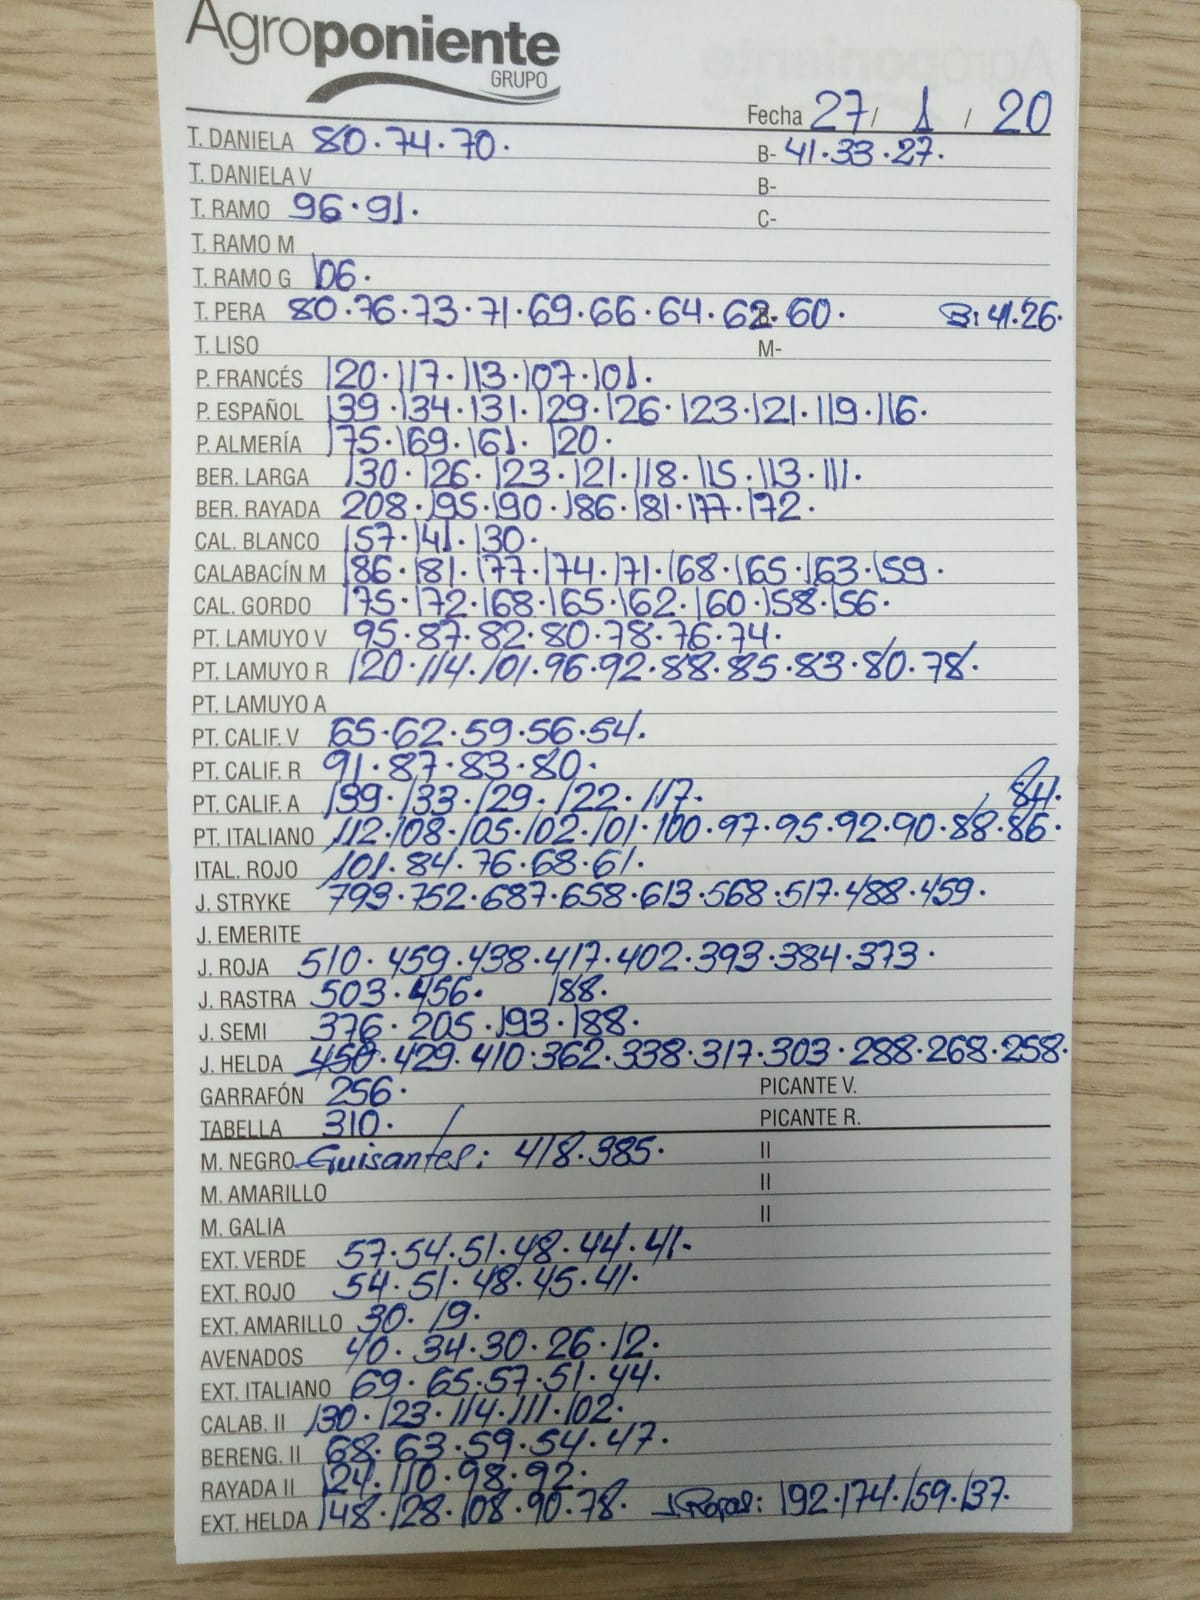 Agroponiente
GRUPO
Fecha 27/ 1 / 20
T. DANIELA 80.74.70. B- 41.33.27.
T. DANIELA V B-
T. RAMO 96.91. C-
T. RAMO M
T. RAMO G 106.
T. PERA 80.76.73.71.69.66.64.62.60. B: 41.26.
T. LISO M-
P. FRANCÉS 120.117.113.107.101.
P. ESPAÑOL 139.134.131.129.126.123.121.119.116.
P. ALMERÍA 175.169.161. 120.
BER. LARGA 130.126.123.121.118.115.113.111.
BER. RAYADA 208.195.190.186.181.177.172.
CAL. BLANCO 157.141.130.
CALABACÍN M 186.181.177.174.171.168.165.163.159.
CAL. GORDO 175.172.168.165.162.160.158.156.
PT. LAMUYO V 95.87.82.80.78.76.74.
PT. LAMUYO R 120.114.101.96.92.88.85.83.80.78.
PT. LAMUYO A
PT. CALIF. V 65.62.59.56.54.
PT. CALIF. R 91.87.83.80.
PT. CALIF. A 139.133.129.122.117.
84.
PT. ITALIANO 112.108.105.102.101.100.97.95.92.90.88.86.
ITAL. ROJO 101.84.76.68.61.
J. STRYKE 793.752.687.658.613.568.517.488.459.
J. EMERITE
J. ROJA 510.459.438.417.402.393.384.373.
J. RASTRA 503.456. 188.
J. SEMI 376.205.193.188.
J. HELDA 450.429.410.362.338.317.303.288.268.258.
GARRAFÓN 256. PICANTE V.
TABELLA 310. PICANTE R.
M. NEGRO Guisantes: 418.385. II
M. AMARILLO II
M. GALIA II
EXT. VERDE 57.54.51.48.44.41.
EXT. ROJO 54.51.48.45.41.
EXT. AMARILLO 30.19.
AVENADOS 40.34.30.26.12.
EXT. ITALIANO 69.65.57.51.44.
CALAB. II 130.123.114.111.102.
BERENG. II 68.63.59.54.47.
RAYADA II 124.110.98.92.
EXT. HELDA 148.128.108.90.78. J. Rojas: 192.174.159.137.